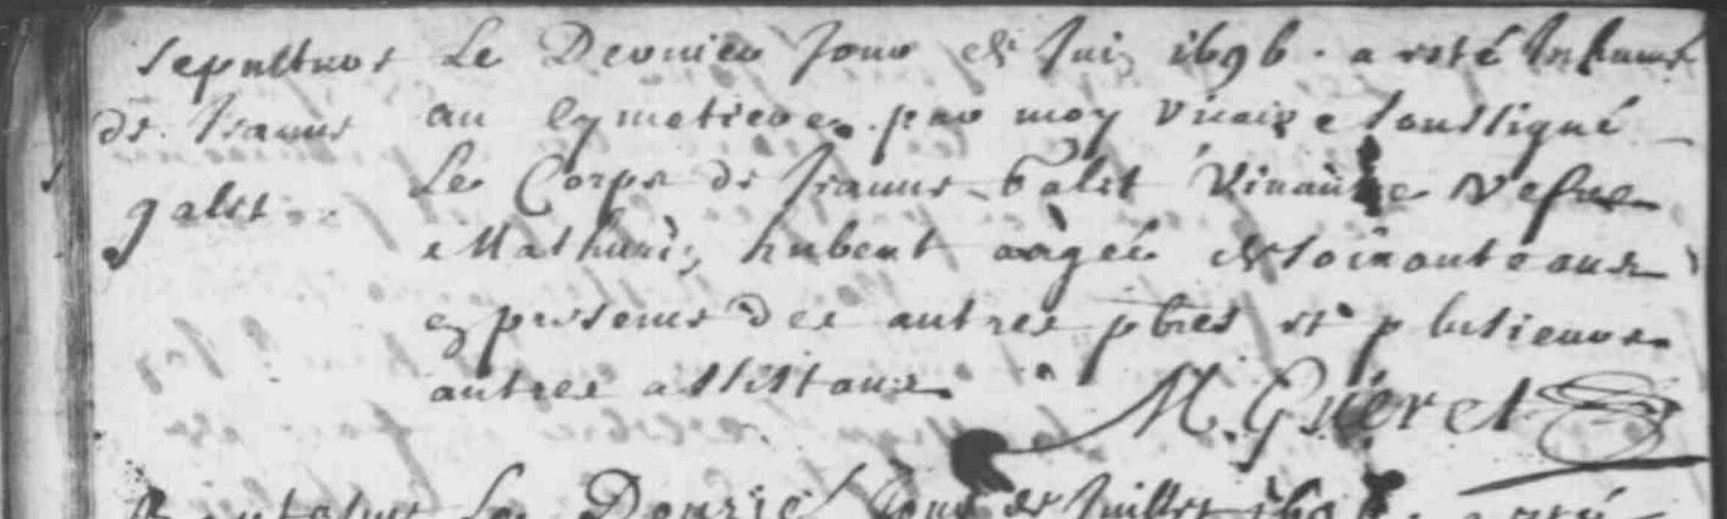 sepulture Le Dernier Jour de Juin 1696. a esté Inhumé
de Jeanne au Cymetiere par moy Vicaire soussigné
galet Le Corps de Jeanne Galet Vivante Vefve
Mathurin hubert aagée de soixante ans
en presence des autres pbres et plusieurs
autres assistans M. Guéret
Le Douzie Jour de Juillet